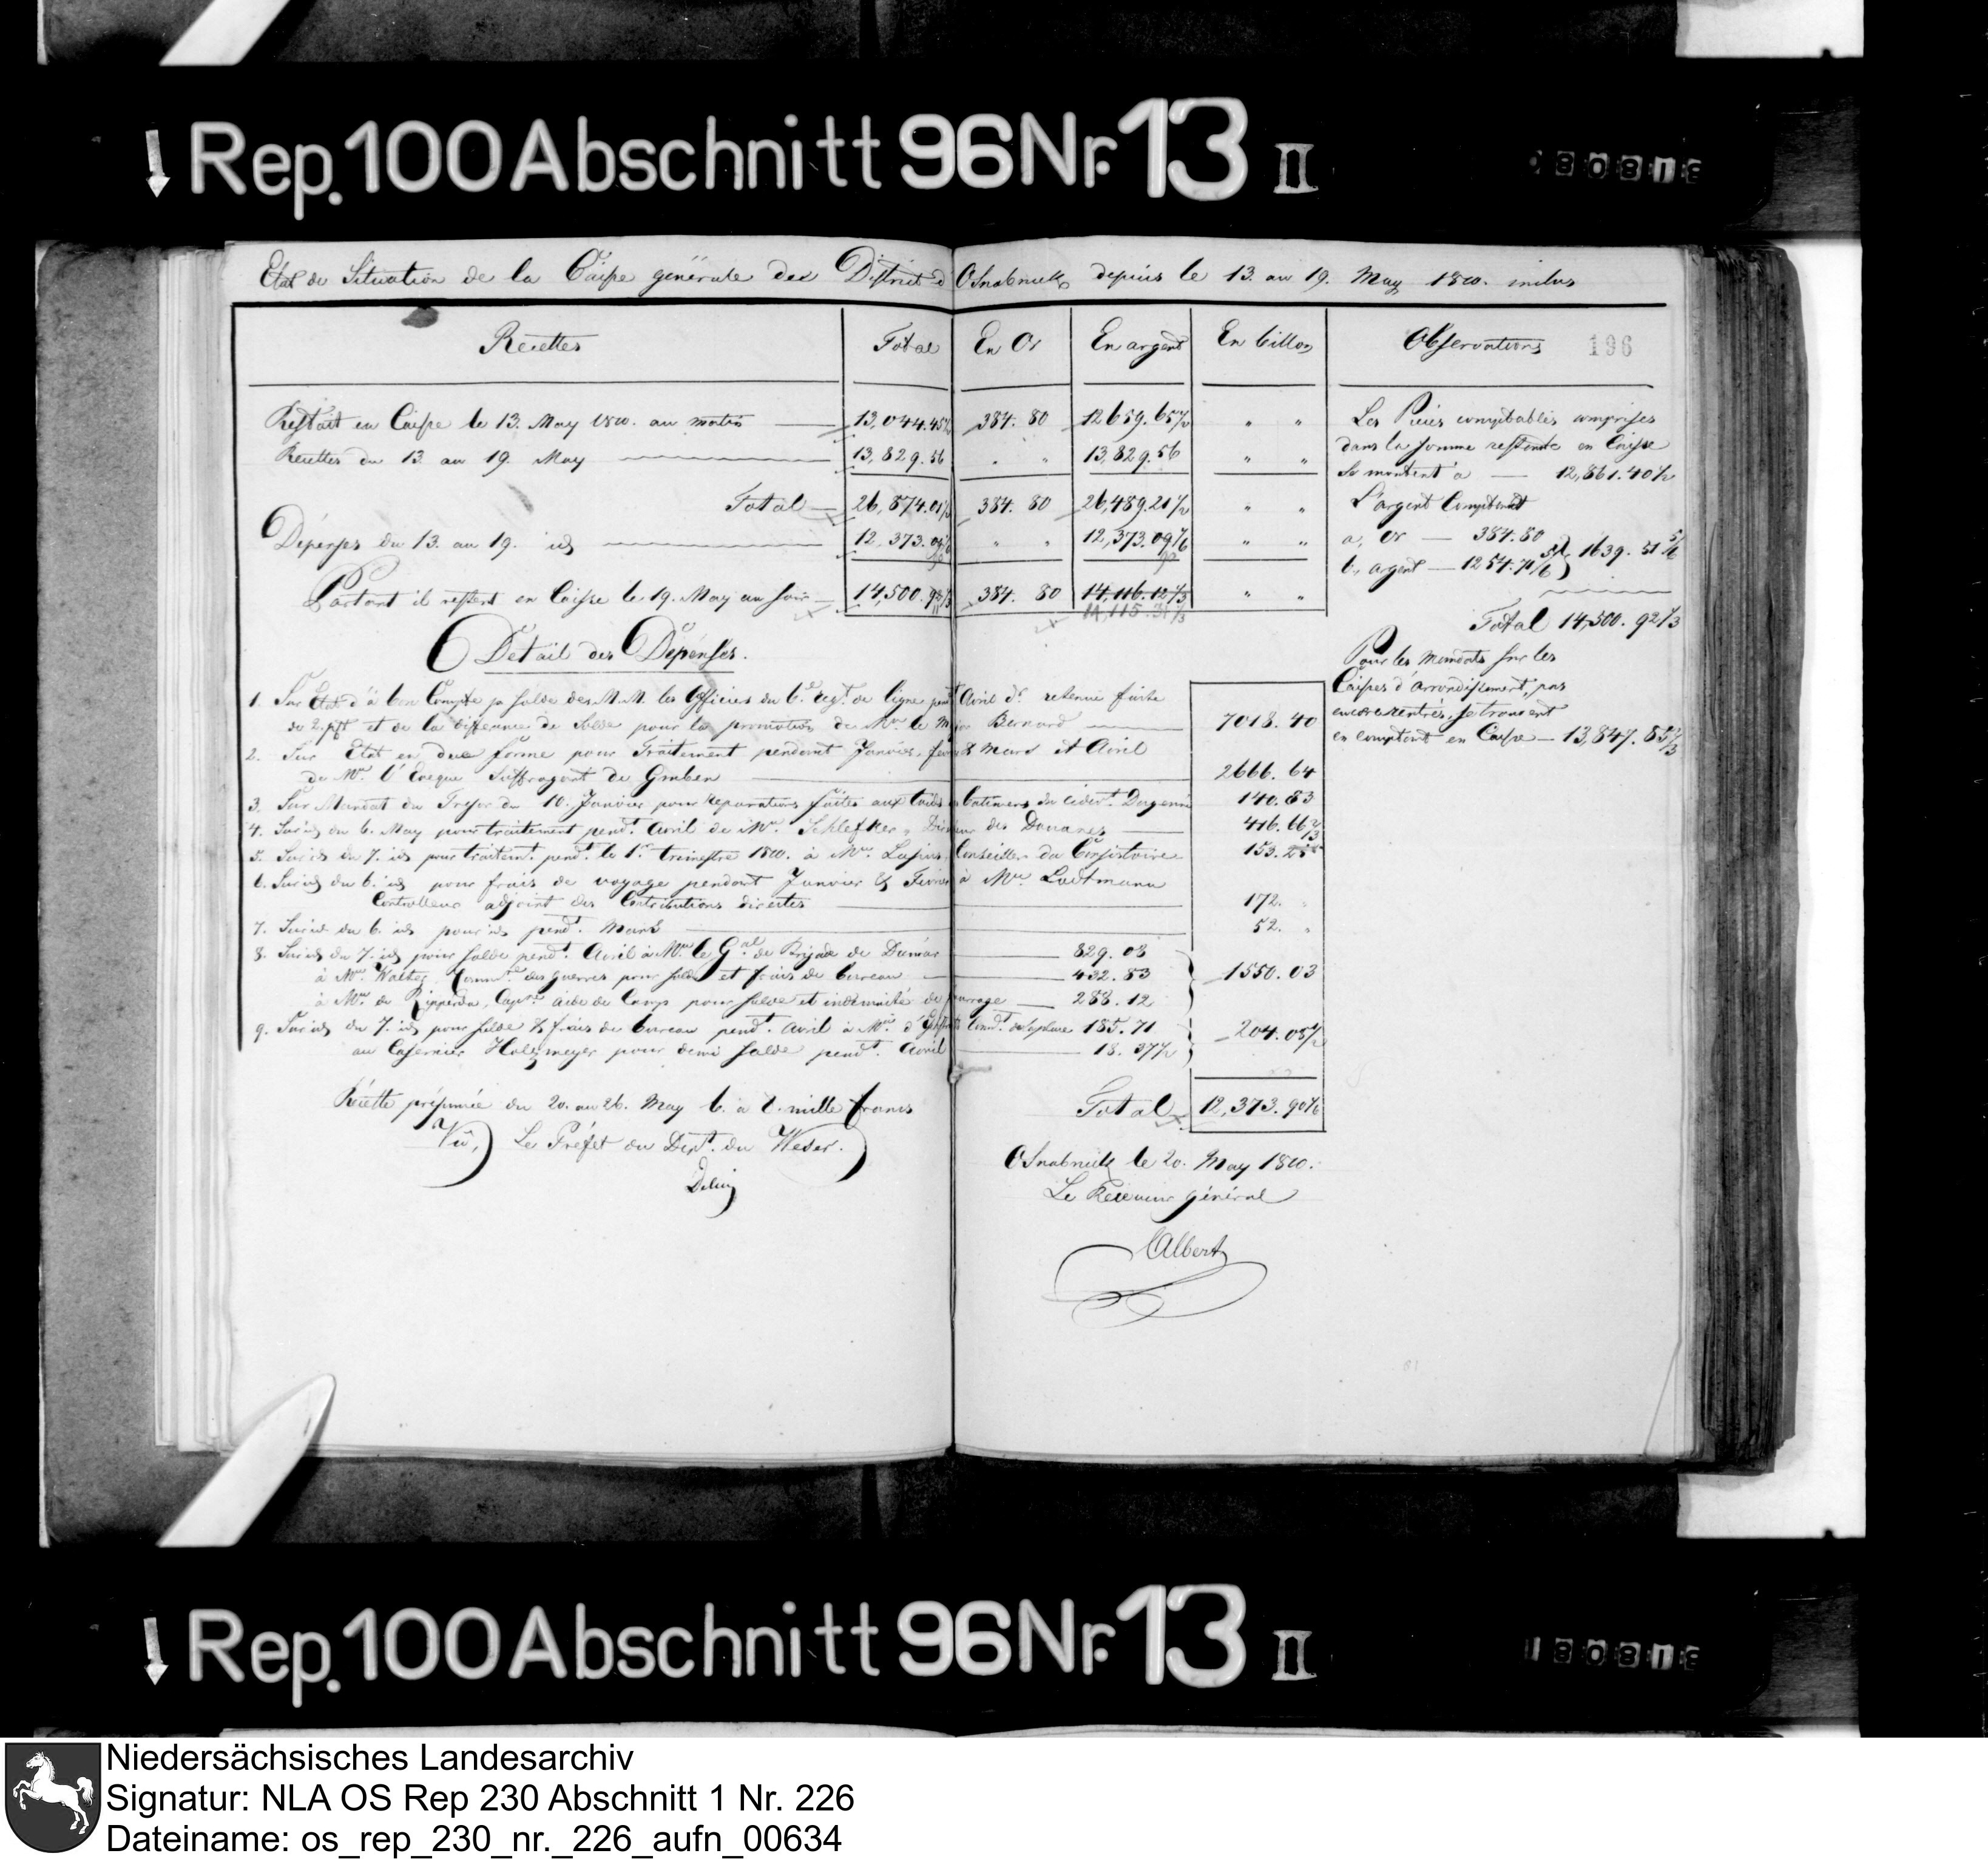 Rep. 100 Abschnitt 96 Nr. 13 II
Etat de Situation de la Caisse générale du District d'Osnabruck depuis le 13. au 19. May 1810. inclus
Recettes Total En Or En argent En billon Observations 196
Restait en Caisse le 13. May 1810. au matin 13,044.45½ 384. 80 12659.65½ " "
Recettes du 13 au 19. May 13,829.56 " " 13,829.56 " "
Total 26,874.01½ 384. 80 26,489.21½ " "
Dépenses du 13. au 19. id 12,373.09⅙ " " 12,373.09⅙ " "
90 90
Partant il restent en Caisse le 19. May au soir 14,500.92⅓ 384. 80 14,116.12⅓ " "
14,115.31⅓
Les Pièces comptables comprises
dans la somme restante en Caisse
se montent à 12,861.40½
L'argent Comptant
a, or 384.80
b, argent 1254.71⅚ } 1639.51⅚
Total 14,500.92⅓
Pour les mandats sur les
Caisses d'arrondissement, pas
encore rentrés, se trouvent
en comptant en Caisse 13,847.85⅔
Détail des Dépenses.
1. Sur Etat d'à bon Compte sa solde des M.M. les Officiers du 6.e regt. de ligne pendt Avril dt. retenue faite
de 2.pft et de la différence de solde pour la promotion de Mr. le Major Bernard 7018. 40
2. Sur Etat en due forme pour Traitement pendant Janvier, fevr & Mars et Avril
de Mr. l'Eveque Suffragant de Gruben 2666. 64
3. Sur Mandat du Tresor du 10. Janvier pour reparations faites aux batimens du cidevt. 140.83
4. Sur id du 6. May pour traitement pendt. Avril de Mr. Schlefker, Directeur des Douanes 416.66⅔
5. Sur id du 7. id pour traitemt. pendt. le 1r. trimestre 1810. à Mr. Lasius, Conseiller du Consistoire 153.25
6. Sur id du 6. id pour frais de voyage pendant Janvier & Fevrier à Mr. Ludtmann
Controlleur adjoint des Contributions directes 172. "
7. Sur id du 6. id pour id pendt. Mars 52. "
8. Sur id du 7. id pour solde pendt. Avril à Mr. le Gal. de Brigade de Dumar 829. 08
à Mr. Walther, Commre des guerres pour solde et frais de bureau 432. 83 } 1550.03
à Mr. de Ripperda, Capne. aide de Camp pour solde et indemnité de fourrage 288. 12
9. Sur id du 7. id pour solde & frais de bureau pendt. Avril à Mr. Comdt. de la place 185.71 } 204.08½
au Casernier Holzmeyer pour demi solde pendt. Avril 18. 37½
Total 12,373.90⅙
Recette présumée du 20. au 26. May 6. à 8. mille francs
Vû, Le Préfet du Dept. du Weser.
Delius
Osnabruck le 20. May 1810.
Le Receveur général
Albert
Rep. 100 Abschnitt 96 Nr. 13 II
Niedersächsisches Landesarchiv
Signatur: NLA OS Rep 230 Abschnitt 1 Nr. 226
Dateiname: os_rep_230_nr._226_aufn_00634